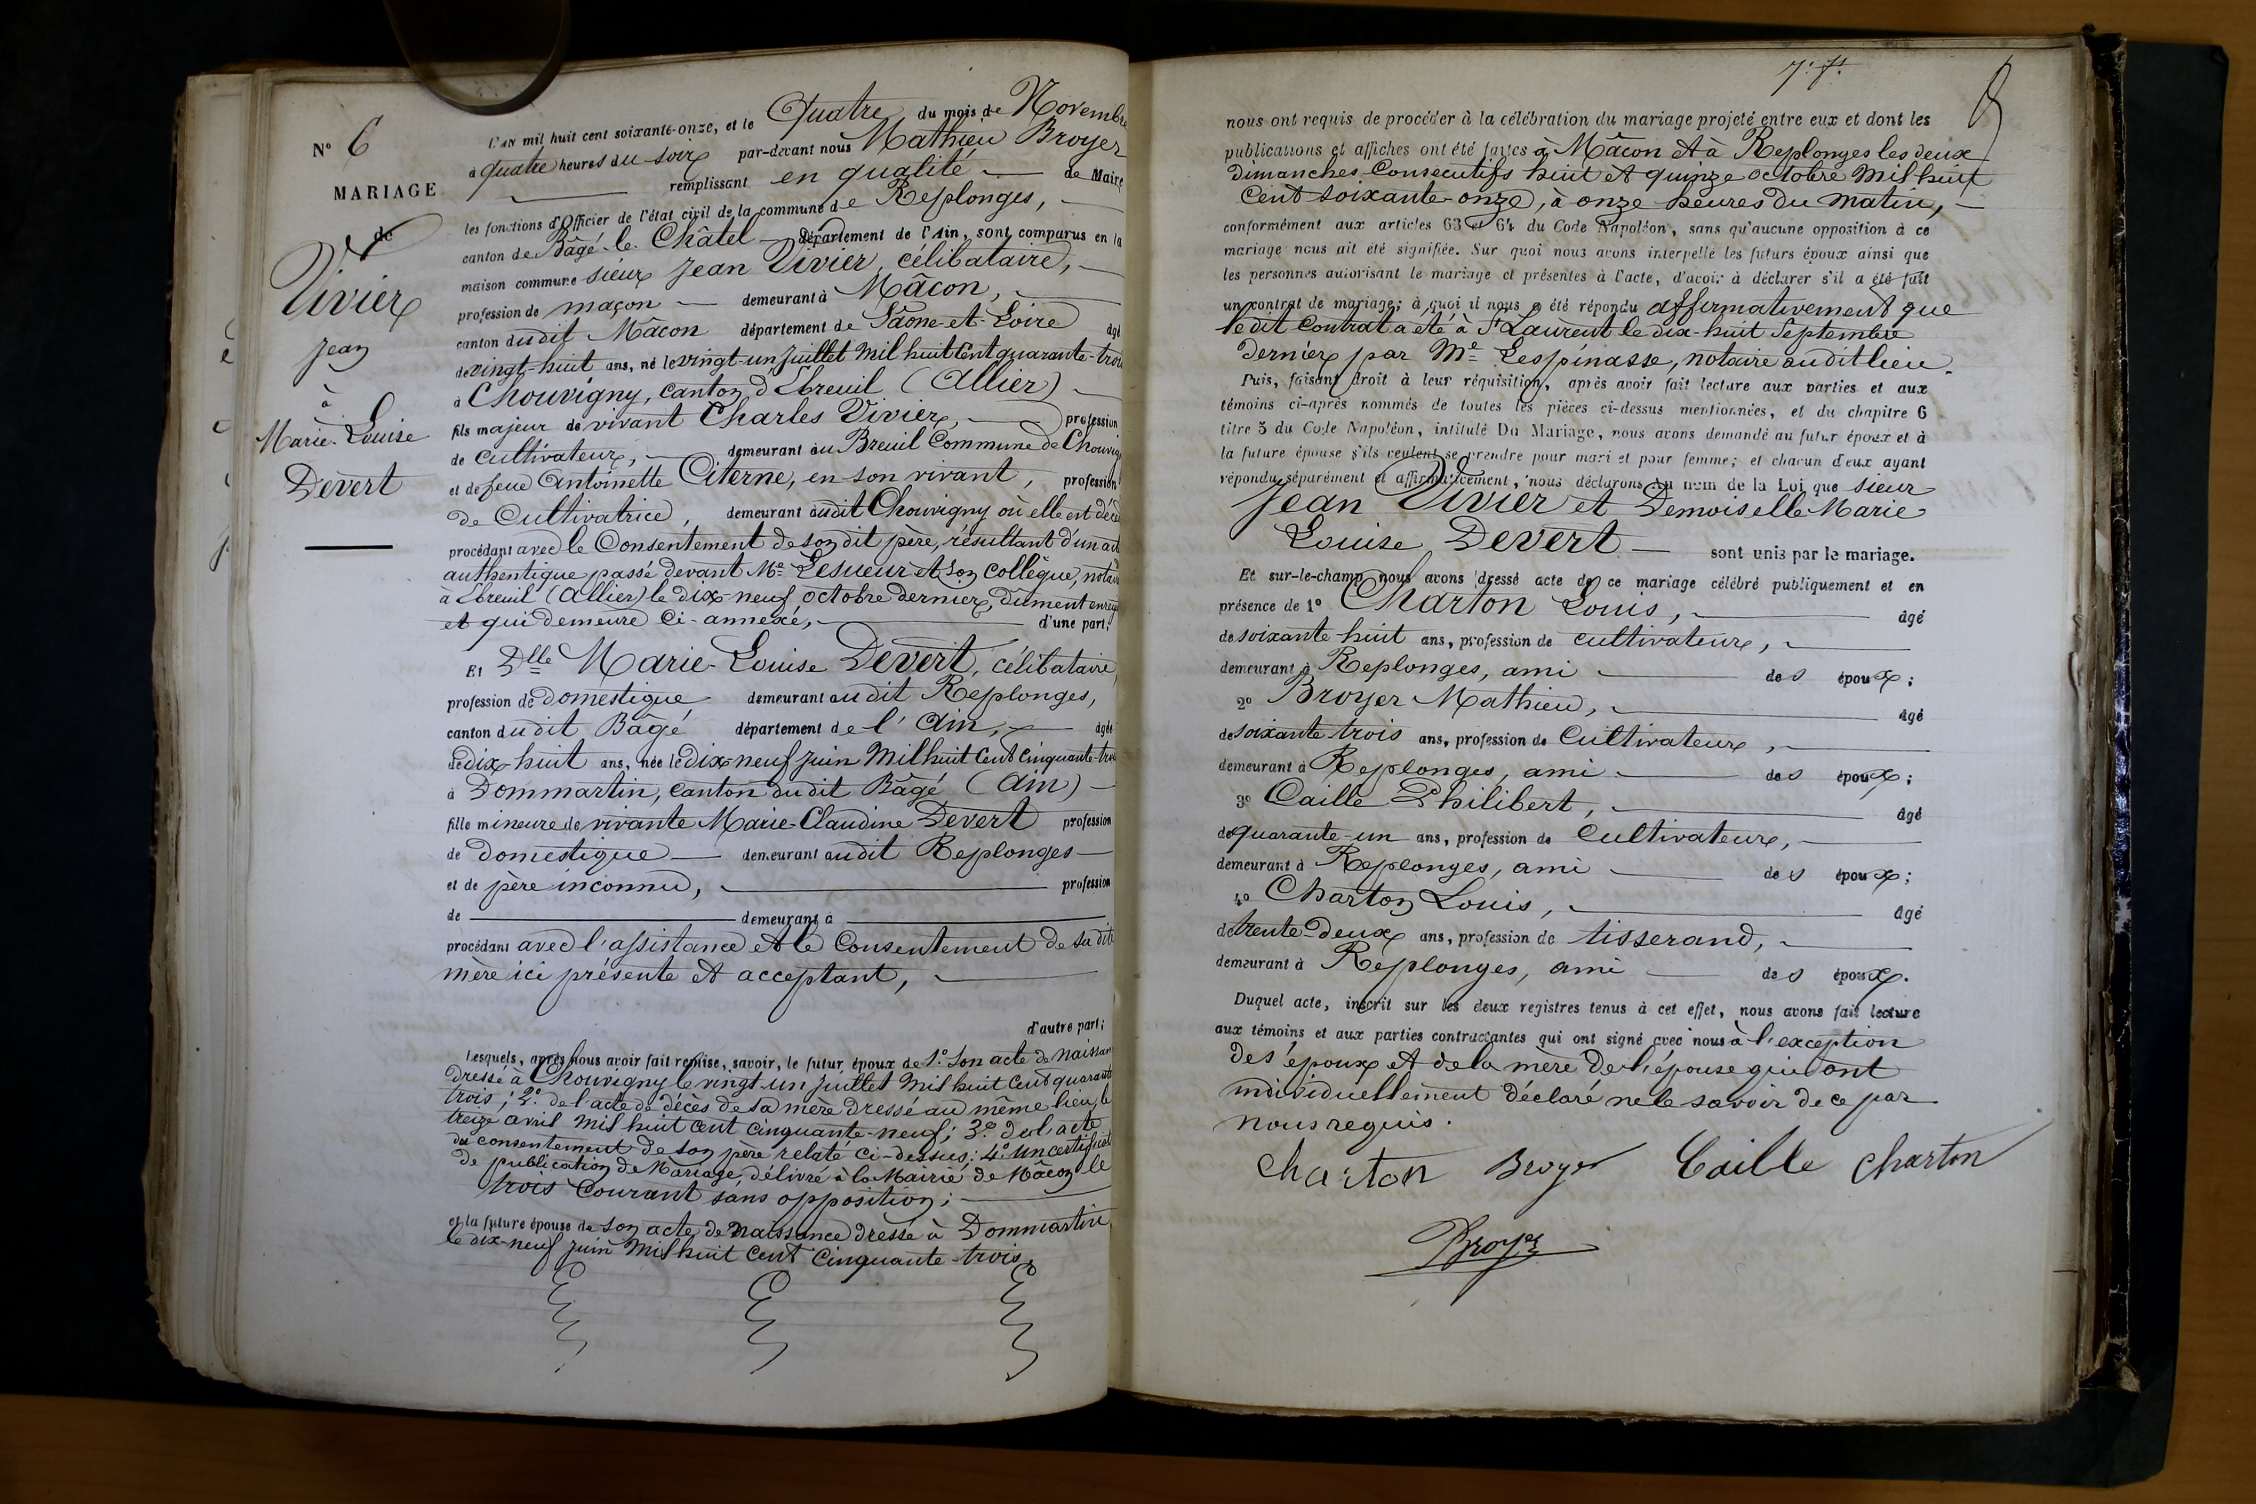 N° 6
MARIAGE
de
Vivier
Jean
à
Marie-Louise
Devert
L'AN mil huit cent soixante-onze, et le Quatre du mois de Novembre
à quatre heures du soir par-devant nous Mathieu Broyer
remplissant en qualité de Maire
les fonctions d'Officier de l'état civil de la commune de Replonges,
canton de Bâgé-le-Châtel département de l'Ain, sont comparus en la
maison commune sieur Jean Vivier, célibataire,
profession de maçon demeurant à Mâcon,
canton dudit Mâcon département de Sâone-et-Loire âgé
de vingt-huit ans, né le vingt-un juillet mil huit cent quarante-trois
à Chouvigny, canton d'Ebreuil (Allier)
fils majeur de vivant Charles Vivier, profession
de cultivateur, demeurant au Breuil Commune de Chouvig
et de feue Antoinette Citerne, en son vivant, profession
de Cultivatrice, demeurant audit Chouvigny où elle est décé
procédant avec le Consentement de son dit père, résultant d'un act
authentique passé devant Me Lesueur et son collègue, notai
à Ebreuil (Allier) le dix-neuf octobre dernier, dûment enreg
et qui demeure ci-annexé, d'une part;
Et Dlle Marie-Louise Devert, célibataire,
profession de domestique demeurant audit Replonges,
canton dudit Bâgé département de l'Ain, âgée
de dix-huit ans, née le dix-neuf juin mil huit cent cinquante-trois
à Dommartin, canton dudit Bâgé (Ain)
fille mineure de vivante Marie-Claudine Devert profession
de domestique demeurant audit Replonges
et de père inconnu, profession
de demeurant à
procédant avec l'assistance et le Consentement de sa dite
mère ici présente et acceptant,
d'autre part;
Lesquels, après nous avoir fait remise, savoir, le futur époux de 1° son acte de naissan
dressé à Chouvigny le vingt-un juillet mil huit cent quarante
trois; 2° de l'acte de décès de sa mère dressé au même lieu, le
treize avril mil huit cent cinquante-neuf; 3° de l'acte
du consentement de son père relaté ci-dessus; 4° un certificat
de publication de Mariage, délivré à la Mairie de Mâcon le
trois courant sans opposition;
et la future épouse de son acte de naissance dressé à Dommartin
le dix-neuf juin mil huit cent cinquante-trois.
7. f.
nous ont requis de procéder à la célébration du mariage projeté entre eux et dont les
publications et affiches ont été faites à Mâcon et à Replonges les deux
dimanches Consécutifs huit et quinze octobre mil huit
cent soixante-onze, à onze heures du matin,
conformément aux articles 63 et 64 du Code Napoléon, sans qu'aucune opposition à ce
mariage nous ait été signifiée. Sur quoi nous avons interpellé les futurs époux ainsi que
les personnes autorisant le mariage et présentes à l'acte, d'avoir à déclarer s'il a été fait
un contrat de mariage; à quoi il nous a été répondu affirmativement que
le dit Contrat a été à St Laurent le dix-huit Septembre
dernier par Me Lespinasse, notaire audit lieu.
Puis, faisant droit à leur réquisition, après avoir fait lecture aux parties et aux
témoins ci-après nommés de toutes les pièces ci-dessus mentionnées, et du chapitre 6
titre 5 du Code Napoléon, intitulé Du Mariage, nous avons demandé au futur époux et à
la future épouse s'ils veulent se prendre pour mari et pour femme; et chacun d'eux ayant
répondu séparément et affirmativement, nous déclarons au nom de la Loi que sieur
Jean Vivier et Demoiselle Marie
Louise Devert sont unis par le mariage.
Et sur-le-champ nous avons dressé acte de ce mariage célébré publiquement et en
présence de 1° Charton Louis, âgé
de soixante-huit ans, profession de cultivateur,
demeurant à Replonges, ami des époux;
2° Broyer Mathieu, âgé
de soixante trois ans, profession de Cultivateur,
demeurant à Replonges, ami des époux;
3° Caille Philibert, âgé
de quarante-un ans, profession de Cultivateur,
demeurant à Replonges, ami des époux;
4° Charton Louis, âgé
de trente-deux ans, profession de tisserand,
demeurant à Replonges, ami des époux.
Duquel acte, inscrit sur les deux registres tenus à cet effet, nous avons fait lecture
aux témoins et aux parties contractantes qui ont signé avec nous à l'exception
des époux et de la mère de l'épouse qui ont
individuellement déclaré ne le savoir de ce par
nous requis.
Charton Broyer Caille Charton
Broyer